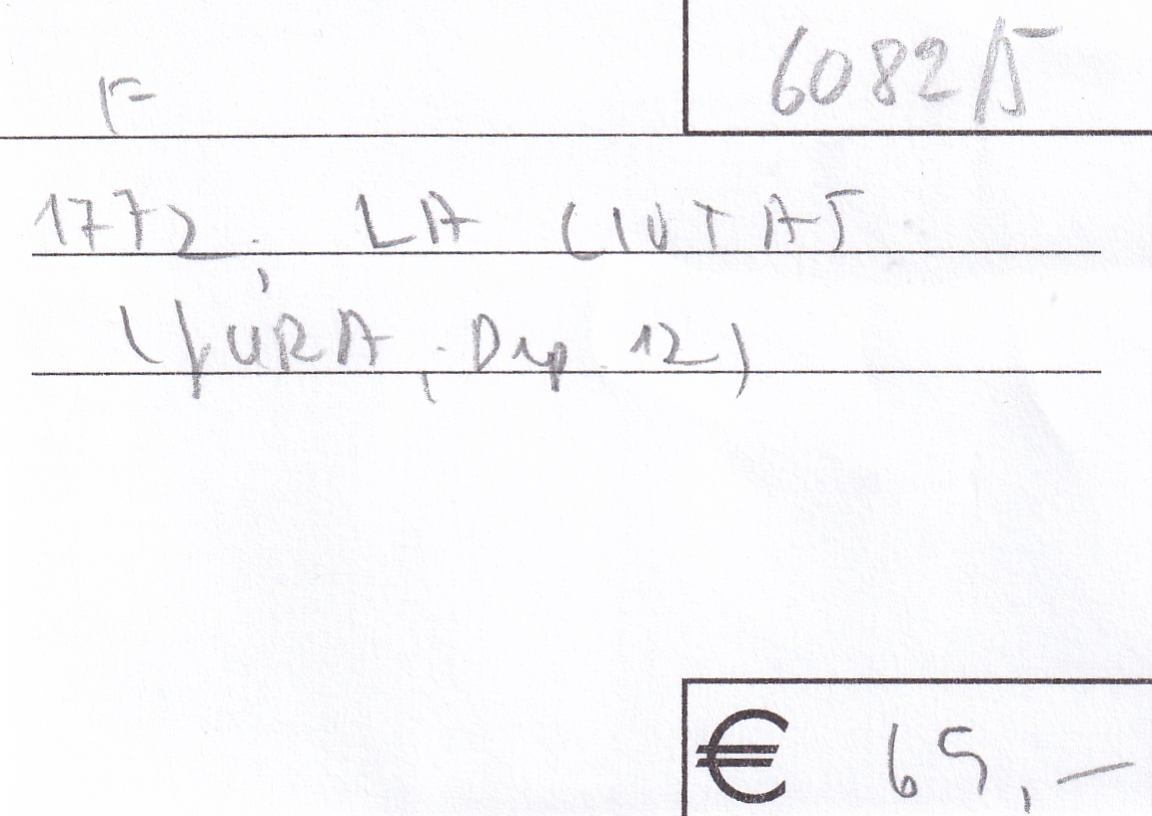 F
6082
1772. LA CIUTAT
(JURA, Dep. 12)
€ 65,—